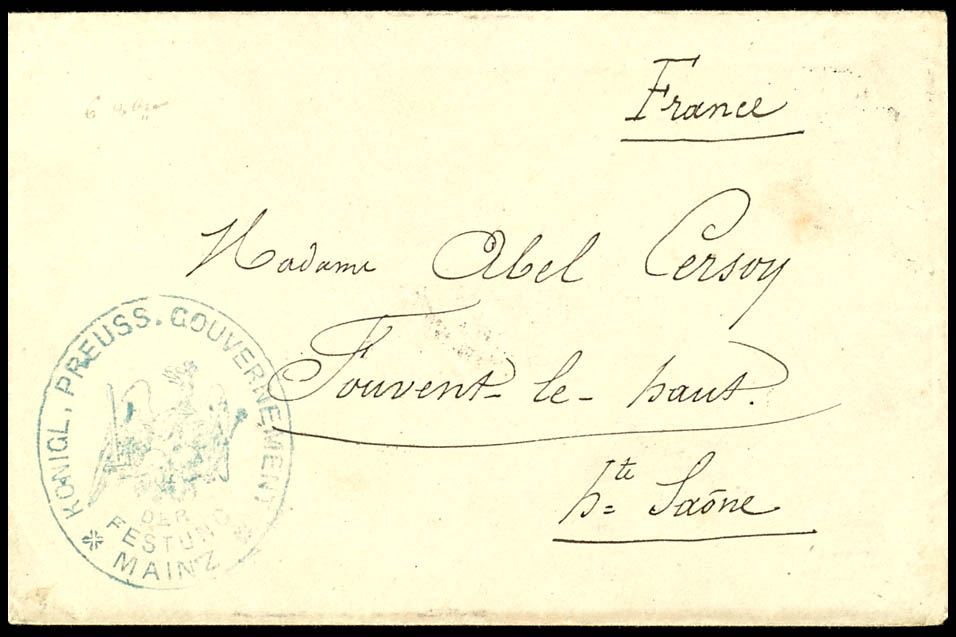 France
Madame Abel Cersoy
Fouvent-le-haut.
hte Saône
KÖNIGL. PREUSS. GOUVERNEMENT
DER
FESTUNG
MAINZ